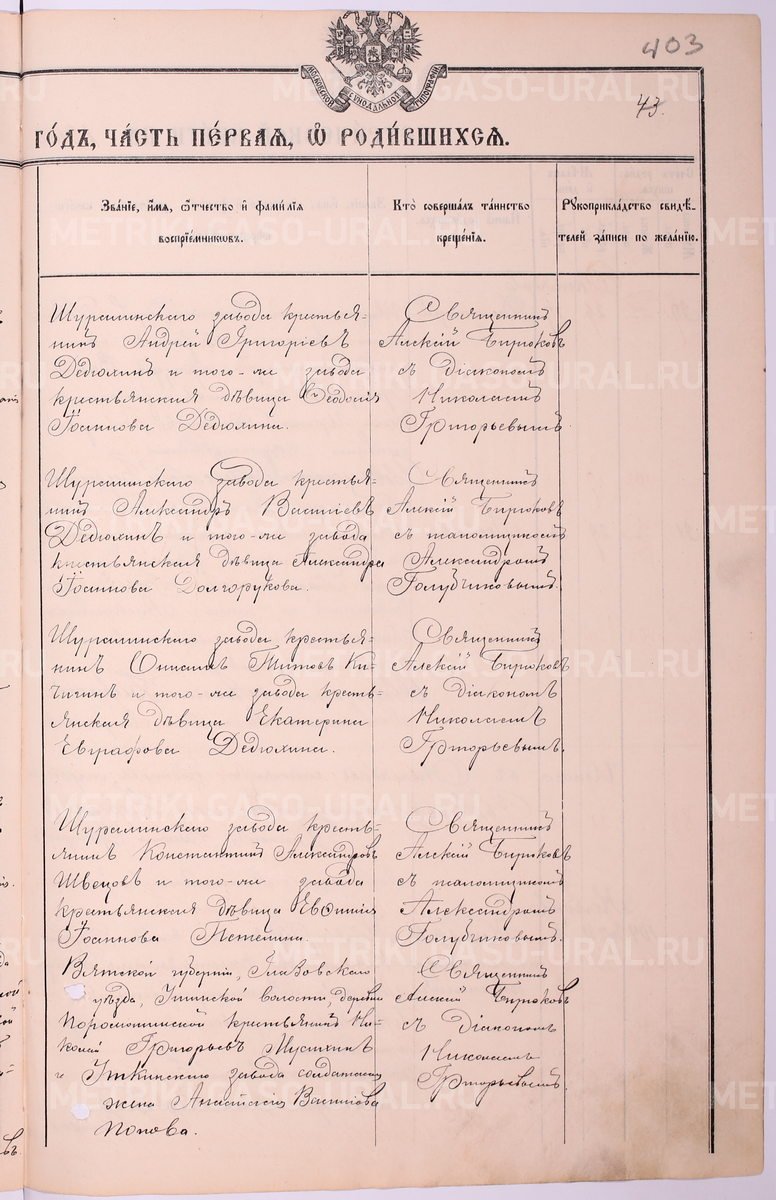 403
43.
МОСКОВСКОЙ СѴНОДАЛЬНОЙ ТИПОГРАФІИ
ГО́ДЪ, ЧА́СТЬ ПЕ́РВАЯ, Ѡ РОДИ́ВШИХСЯ.
Зва́нїе, и́мя, ѻ́тчество и҆ фами́лїя
воспрїе́мникωвъ.
Кто̀ соверша́лъ та́инство
креще́нїя.
Рꙋкоприкла́дство свидѣ́-
телей за́писи по жела́нїю.
Шуралинскаго завода крестья=
нинъ Андрей Григоріевъ
Дедюхинъ и того-же завода
крестьянская дѣвица Ѳеодосія
Іоаннова Дедюхина.
Священникъ
Алексій Бирюковъ
съ діакономъ
Николаемъ
Григорьевымъ
Шуралинскаго завода крестья=
нинъ Александръ Василіевъ
Дедюхинъ и того-же завода
крестьянская дѣвица Александра
Іоаннова Долгорукова.
Священникъ
Алексій Бирюковъ
съ псаломщикомъ
Александромъ
Голубчиковымъ.
Шуралинскаго завода крестья=
нинъ Титовъ Ки=
чигинъ и того-же завода кресть=
янская дѣвица Екатерина
Евграфова Дедюхина.
Священникъ
Алексій Бирюковъ
съ діакономъ
Николаемъ
Григорьевымъ.
Шуралинскаго завода кресть=
янинъ Константинъ Александровъ
Швецовъ и того-же завода
крестьянская дѣвица Евѳимія
Іоаннова Петелина.
Священникъ
Алексій Бирюковъ
съ псаломщикомъ
Александромъ
Голубчиковымъ.
Вятской губерніи, Глазовскаго
уѣзда, волости, деревни
крестьянинъ Ни=
колай Григорьевъ
и Уткинскаго завода солдатская
жена Анастасія Василіева
Попова.
Священникъ
Алексій Бирюковъ
съ діакономъ
Николаемъ
Григорьевымъ.
METRIKI.GASO-URAL.RU